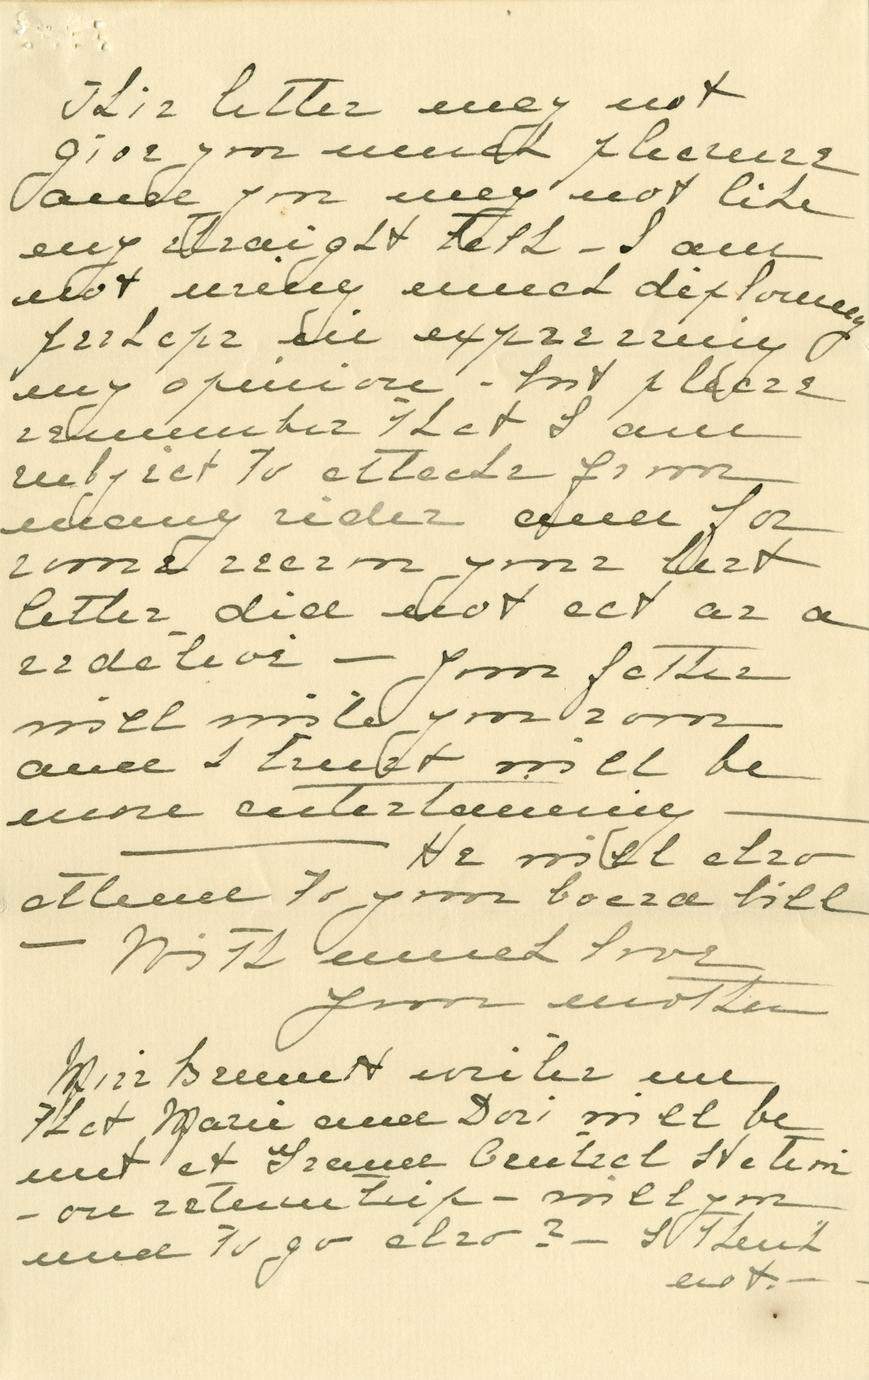 This letter may not
give you much pleasure
and you may not like
my straight talk - I am
not using much diplomacy
perhaps in expressing
my opinion - but please
remember that I am
subject to attacks from
many sides and for
some reason your last
letter did not act as a
sedative — Your father
will write you soon
and I trust will be
more entertaining —
— He will also
attend to your board bill
— With much love
Your mother
Miss Bennett writes me
that Marie and Dori will be
met at Grand Central Station
- on return trip - will you
need to go also? - I think
not. -